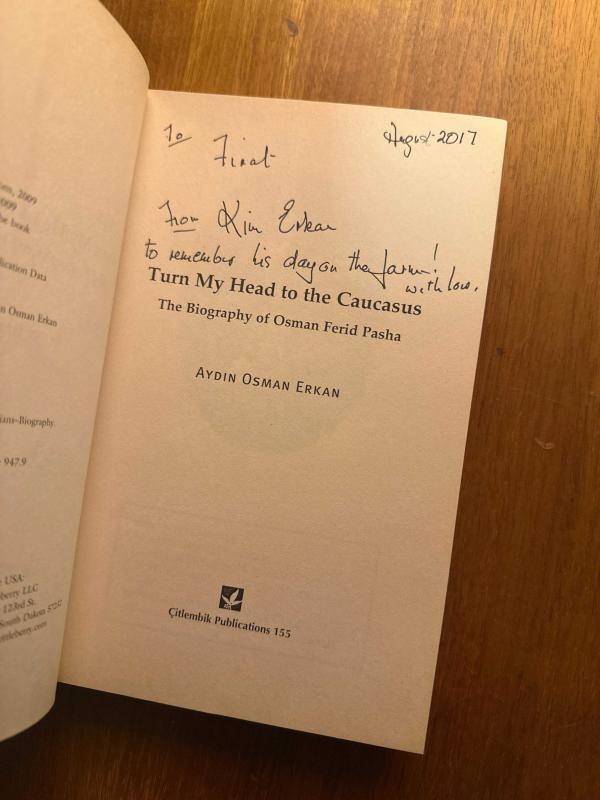 To
August 2017
Firat
From Kim Erkan
to remember his day on the farm!
with love.
Turn My Head to the Caucasus
The Biography of Osman Ferid Pasha
AYDIN OSMAN ERKAN
Çitlembik Publications 155
2009
2009
he book
lication Data
n Osman Erkan
ians–Biography.
947.9
USA:
berry LLC
123rd St.
South Dakota
ttleberry.com